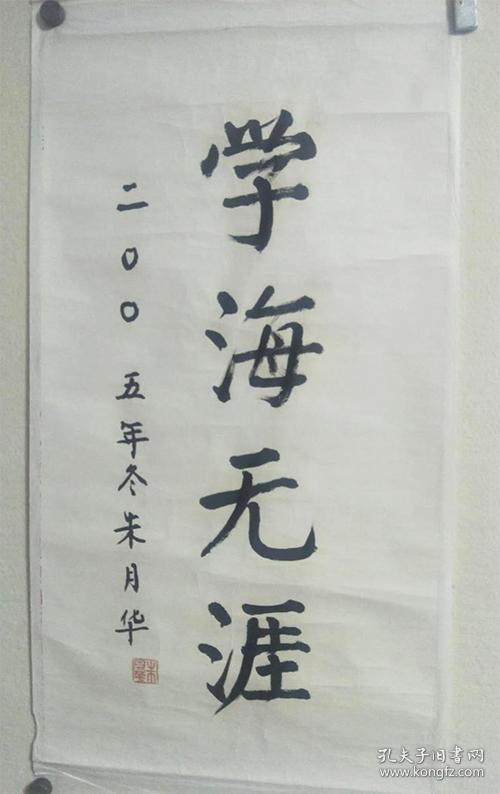 学海无涯
二〇〇五年冬朱月华
孔夫子旧书网
www.kongfz.com